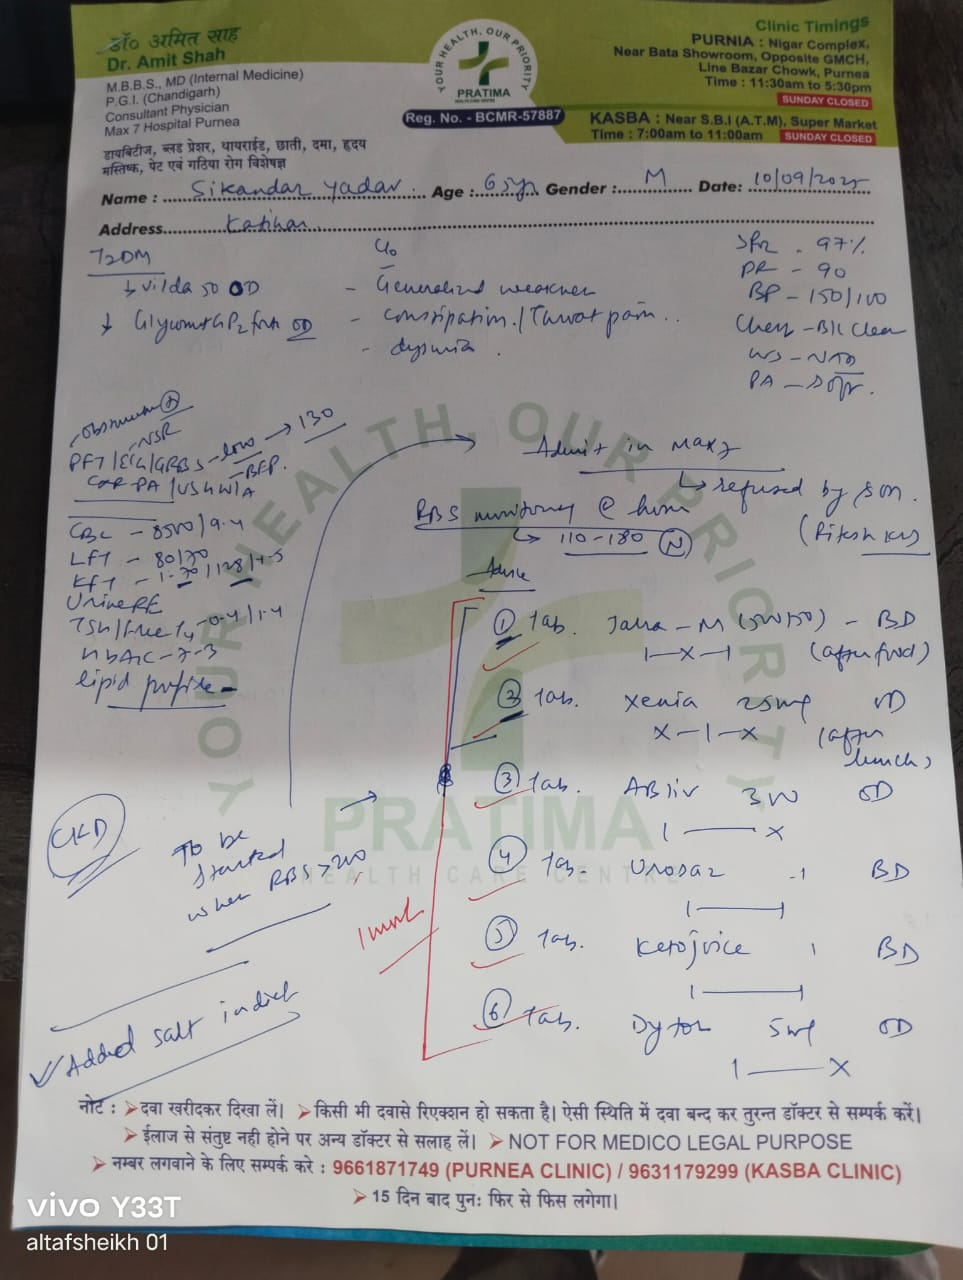 डॉ० अमित साह
Dr. Amit Shah
M.B.B.S., MD (Internal Medicine)
P.G.I. (Chandigarh)
Consultant Physician
Max 7 Hospital Purnea
डायबिटीज, ब्लड प्रेशर, थायराईड, छाती, दमा, हृदय
मस्तिष्क, पेट एवं गठिया रोग विशेषज्ञ
YOUR HEALTH, OUR PRIORITY
PRATIMA
HEALTH CARE CENTRE
Reg. No. - BCMR-57887
Clinic Timings
PURNIA : Nigar Complex,
Near Bata Showroom, Opposite GMCH,
Line Bazar Chowk, Purnea
Time : 11:30am to 5:30pm
SUNDAY CLOSED
KASBA : Near S.B.I (A.T.M), Super Market
Time : 7:00am to 11:00am SUNDAY CLOSED
Name : Sikandar Yadav Age : 65yr Gender : M Date: 10/09/2025
Address Katihar
T2DM
Vilda 50 OD
OD
C/o
- Generalized weakness
- Constipation / Throat pain
- dysuria
SPO2 - 97%
PR - 90
BP - 150/100
Chest - B/L Clear
PA - Soft
NSR
PFT / ECG / GRBS - low → 130
CBC - 8500/9.4
LFT - 80/70
KFT - 1.70/128/
Urine RE
TSH/free T4 - 0.4/1.4
HbA1C - 7.3
lipid profile -
Admit in Max 7
↳ refused by son.
(Ritesh Kr)
RBS monitoring @ home
↳ 110-180 (N)
Advice
① Tab. - M (500/50) - BD
1-x-1 (after food)
② Tab. Xenia 25mg OD
x-1-x (after lunch)
③ Tab. ABliv 300 OD
1 — x
④ Tab. 1 BD
1 — 1
⑤ Tab. Ketojvice 1 BD
1 — 1
⑥ Tab. Dytor 5mg OD
1 — x
CKD
To be
started
when RBS > 200
Added salt in diet
YOUR HEALTH, OUR PRIORITY
PRATIMA
HEALTH CARE CENTRE
नोट : ➤दवा खरीदकर दिखा लें। ➤किसी भी दवासे रिएक्शन हो सकता है। ऐसी स्थिति में दवा बन्द कर तुरन्त डॉक्टर से सम्पर्क करें।
➤ईलाज से संतुष्ट नही होने पर अन्य डॉक्टर से सलाह लें। ➤NOT FOR MEDICO LEGAL PURPOSE
➤नम्बर लगवाने के लिए सम्पर्क करे : 9661871749 (PURNEA CLINIC) / 9631179299 (KASBA CLINIC)
➤15 दिन बाद पुनः फिर से फिस लगेगा।
vivo Y33T
altafsheikh 01